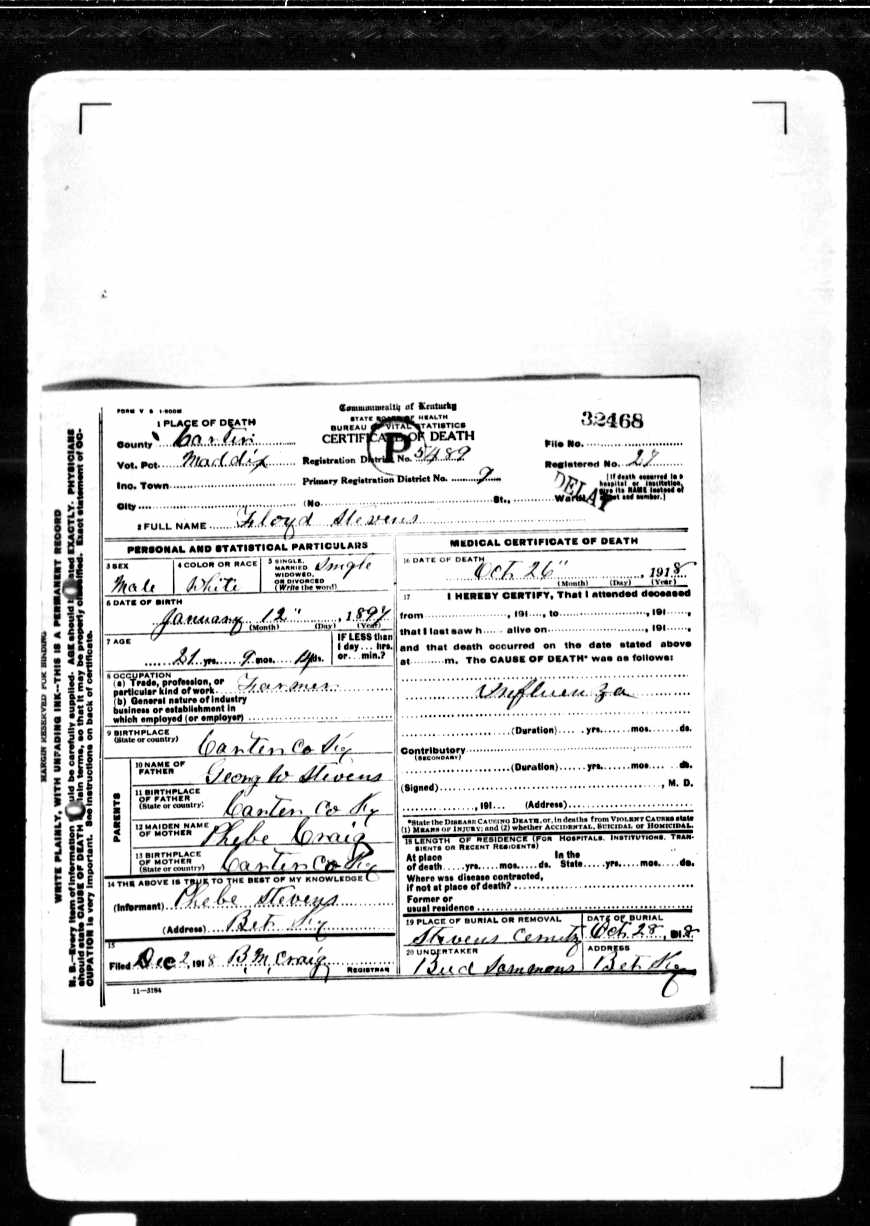 FORM V S 1-900M
Commonwealth of Kentucky
STATE BOARD OF HEALTH
BUREAU OF VITAL STATISTICS
CERTIFICATE OF DEATH
P
32468
1 PLACE OF DEATH
County Carter
Vot. Pct. Maddix
Inc. Town
City
Registration District No. 5489
Primary Registration District No. 9
(No. St., Ward)
File No.
Registered No. 27
DELAY
[If death occurred in a
hospital or institution,
give its NAME instead of
street and number.]
2 FULL NAME Floyd Stevens
PERSONAL AND STATISTICAL PARTICULARS
3 SEX
Male
4 COLOR OR RACE
White
5 SINGLE,
MARRIED,
WIDOWED,
OR DIVORCED
(Write the word)
Single
6 DATE OF BIRTH
January 12", 1897
(Month) (Day) (Year)
7 AGE
21 yrs. 9 mos. 14 ds.
IF LESS than
1 day ... hrs.
or ... min.?
8 OCCUPATION
(a) Trade, profession, or
particular kind of work Farmer
(b) General nature of industry
business or establishment in
which employed (or employer)
9 BIRTHPLACE
(State or country)
Carter Co Ky
PARENTS
10 NAME OF
FATHER
Georg W Stevens
11 BIRTHPLACE
OF FATHER
(State or country)
Carter Co Ky
12 MAIDEN NAME
OF MOTHER
Phebe Craig
13 BIRTHPLACE
OF MOTHER
(State or country)
Carter Co Ky
14 THE ABOVE IS TRUE TO THE BEST OF MY KNOWLEDGE
(Informant) Phebe Stevens
(Address) Bet Ky
15
Filed Dec 2, 1918 B. M. Craig
REGISTRAR
11—3184
MEDICAL CERTIFICATE OF DEATH
16 DATE OF DEATH
Oct. 26", 1918
(Month) (Day) (Year)
17 I HEREBY CERTIFY, That I attended deceased
from , 191 , to , 191 ,
that I last saw h alive on , 191 ,
and that death occurred on the date stated above
at m. The CAUSE OF DEATH* was as follows:
Influenza
(Duration) yrs. mos. ds.
Contributory
(SECONDARY)
(Duration) yrs. mos. ds.
(Signed) , M. D.
, 191 (Address)
*State the DISEASE CAUSING DEATH, or, in deaths from VIOLENT CAUSES state
(1) MEANS OF INJURY; and (2) whether ACCIDENTAL, SUICIDAL OR HOMICIDAL.
18 LENGTH OF RESIDENCE (FOR HOSPITALS, INSTITUTIONS, TRAN-
SIENTS OR RECENT RESIDENTS)
At place In the
of death yrs. mos. ds. State yrs. mos. ds.
Where was disease contracted,
if not at place of death?
Former or
usual residence
19 PLACE OF BURIAL OR REMOVAL
Stevens
DATE OF BURIAL
Oct. 28, 1918
20 UNDERTAKER
Bud Sammons
ADDRESS
Bet Ky
MARGIN RESERVED FOR BINDING
WRITE PLAINLY, WITH UNFADING INK—THIS IS A PERMANENT RECORD
N. B.—Every item of information should be carefully supplied. AGE should be stated EXACTLY. PHYSICIANS
should state CAUSE OF DEATH in plain terms, so that it may be properly classified. Exact statement of OC-
CUPATION is very important. See instructions on back of certificate.